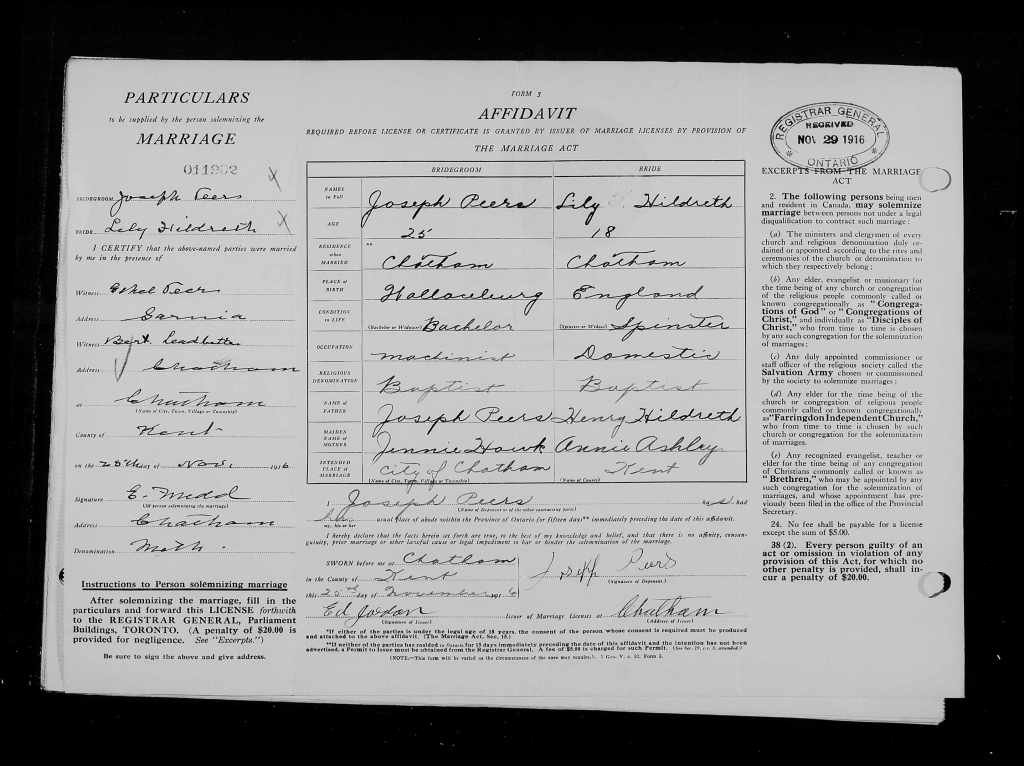 PARTICULARS
to be supplied by the person solemnizing the
MARRIAGE
BRIDEGROOM Joseph Peers
BRIDE Lily Hildreth
I CERTIFY that the above-named parties were married
by me in the presence of
Witness Ethel Peers
Address Sarnia
Witness Bert Leadbetter
Address Chatham
at Chatham
(Name of City, Town, Village or Township)
County of Kent
on the 25th day of Nov. 1916
Signature E. Medd
(Of person solemnizing the marriage)
Address Chatham
Denomination Meth.
Instructions to Person solemnizing marriage
After solemnizing the marriage, fill in the
particulars and forward this LICENSE forthwith
to the REGISTRAR GENERAL, Parliament
Buildings, TORONTO. (A penalty of $20.00 is
provided for negligence. See "Excerpts.")
Be sure to sign the above and give address.
FORM 3
AFFIDAVIT
REQUIRED BEFORE LICENSE OR CERTIFICATE IS GRANTED BY ISSUER OF MARRIAGE LICENSES BY PROVISION OF
THE MARRIAGE ACT
BRIDEGROOM BRIDE
NAMES in Full Joseph Peers Lily Hildreth
AGE 25 18
RESIDENCE when MARRIED ** Chatham Chatham
PLACE of BIRTH Wallaceburg England
CONDITION in LIFE (Bachelor or Widower) Bachelor (Spinster or Widow) Spinster
OCCUPATION machinist Domestic
RELIGIOUS DENOMINATION Baptist Baptist
NAME of FATHER Joseph Peers Henry Hildreth
MAIDEN NAME of MOTHER Jennie Hawk Annie Ashley
INTENDED PLACE of MARRIAGE City of Chatham Kent
(Name of City, Town, Village or Township) (Name of County)
I Joseph Peers
(Name of Deponent or of the other contracting party)
had
his or her
usual place of abode within the Province of Ontario for fifteen days** immediately preceding the date of this affidavit.
I hereby declare that the facts herein set forth are true, to the best of my knowledge and belief, and that there is no affinity, consanguinity, prior marriage or other lawful cause or legal impediment to bar or hinder the solemnization of the marriage.
SWORN before me at Chatham
in the County of Kent Joseph Peers
(Signature of Deponent.)
this day of November 1916
Ed Jordon Issuer of Marriage Licenses at Chatham
(Signature of Issuer) (Address of Issuer)
*If either of the parties is under the legal age of 18 years, the consent of the person whose consent is required must be produced
and attached to the above affidavit. (The Marriage Act, Sec. 19.)
**If neither of the parties has resided in Ontario for 15 days immediately preceding the date of this affidavit and the intention has not been
advertised, a Permit to Issue must be obtained from the Registrar General. A fee of $5.00 is charged for such Permit.
(NOTE.—This form will be varied as the circumstances of the case may require.)
REGISTRAR GENERAL
RECEIVED
NOV 29 1916
ONTARIO
EXCERPTS FROM THE MARRIAGE
ACT
2. The following persons being men
and resident in Canada, may solemnize
marriage between persons not under a legal
disqualification to contract such marriage:
(a) The ministers and clergymen of every
church and religious denomination duly ordained or appointed according to the rites and
ceremonies of the church or denomination to
which they respectively belong;
(b) Any elder, evangelist or missionary for
the time being of any church or congregation
of the religious people commonly called or
known congregationally as "Congregations of God" or "Congregations of
Christ," and individually as "Disciples of
Christ," who from time to time is chosen
by any such congregation for the solemnization
of marriages;
(c) Any duly appointed commissioner or
staff officer of the religious society called the
Salvation Army chosen or commissioned
by the society to solemnize marriages;
(d) Any elder for the time being of the
church or congregation of religious people
commonly called or known congregationally
as "Farringdon Independent Church,"
who from time to time is chosen by such
church or congregation for the solemnization
of marriages.
(e) Any recognized evangelist, teacher or
elder for the time being of any congregation
of Christians commonly called or known as
"Brethren," who may be appointed by any
such congregation for the solemnization of
marriages, and whose appointment has previously been filed in the office of the Provincial
Secretary.
24. No fee shall be payable for a license
except the sum of $5.00.
38 (2). Every person guilty of an
act or omission in violation of any
provision of this Act, for which no
other penalty is provided, shall incur a penalty of $20.00.